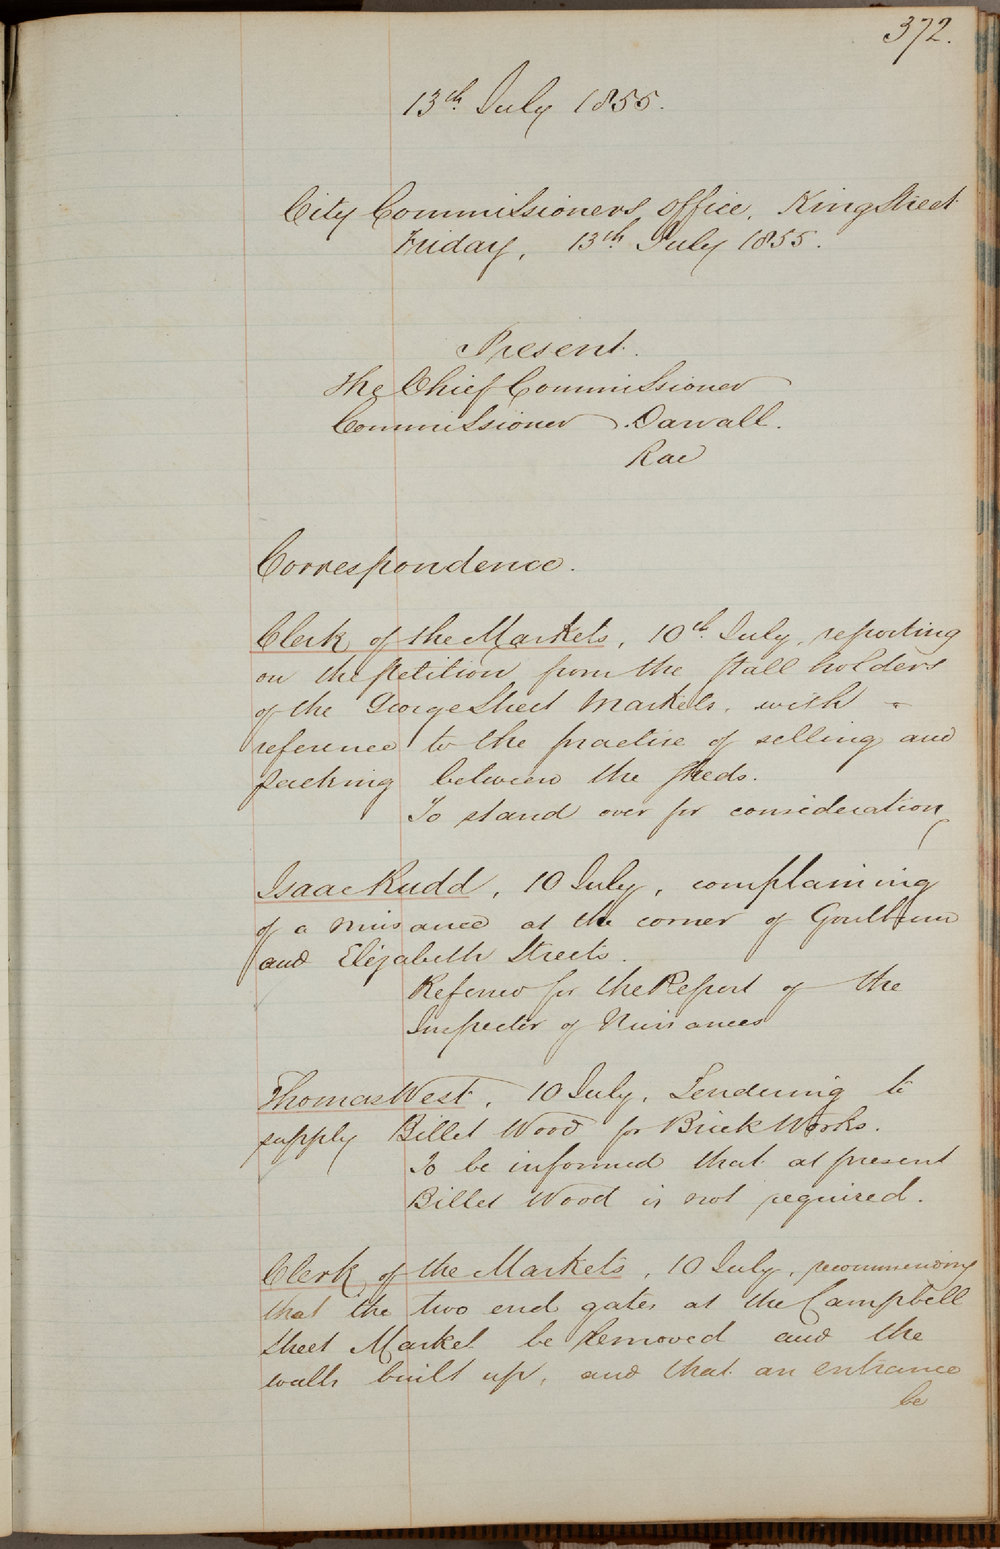 372.
13th July 1855.
City Commissioners Office, King Street
Friday, 13th July 1855.
Present.
The Chief Commissioner
Commissioner Darvall.
Rae
Correspondence.
Clerk of the Markets, 10th July, reporting
on the petition from the Stall holders
of the George Street Markets, with -
reference to the practise of selling and
packing between the Sheds.
To stand over for consideration
Isaac Rudd, 10 July, complaining
of a nuisance at the corner of Goulburn
and Elizabeth Streets.
Referred for the Report of the
Inspector of Nuisances
Thomas West, 10 July, Tendering to
supply Billet Wood for Brick Works.
To be informed that at present
Billet Wood is not required.
Clerk of the Markets, 10 July, recommending
that the two end gates at the Campbell
Street Market be removed and the
walls built up, and that an entrance
be